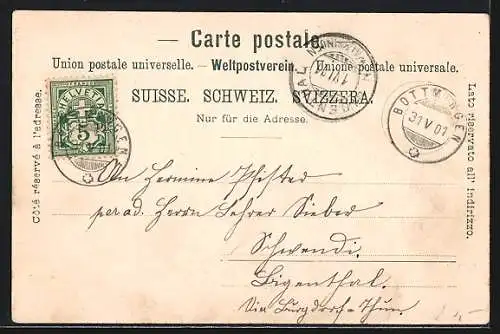 — Carte postale.
Union postale universelle. — Weltpostverein. — Unione postale universale.
SUISSE. SCHWEIZ. SVIZZERA.
Nur für die Adresse.
Côté réservé à l'adresse.
Lato riservato all' indirizzo.
HELVETIA
5
BOTTMINGEN
31 V 01
1 VI 01
An Hermine Pfister
per ad. Herrn Lehrer Sieber
Schwendi.
Bigenthal.
Via Burgdorf-Thun.